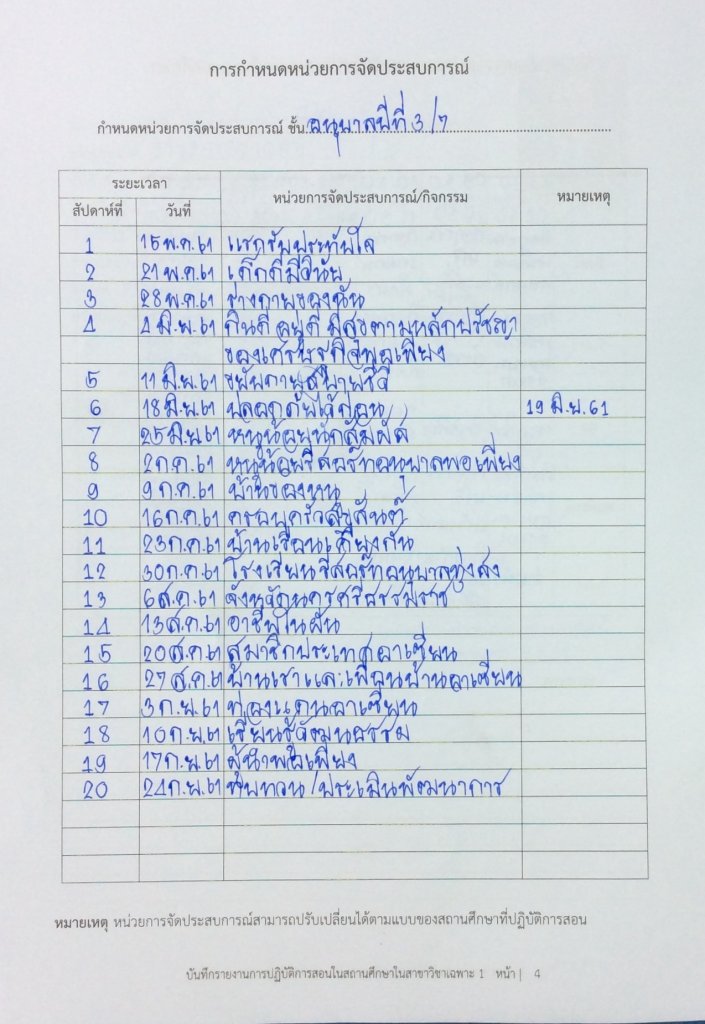 การกำหนดหน่วยการจัดประสบการณ์
กำหนดหน่วยการจัดประสบการณ์ ชั้น อนุบาลปีที่ 3/7
ระยะเวลา หน่วยการจัดประสบการณ์/กิจกรรม หมายเหตุ
สัปดาห์ที่ วันที่
1 15 พ.ค. 61 แรกรับประทับใจ
2 21 พ.ค. 61 เด็กดีมีวินัย
3 28 พ.ค. 61 ร่างกายของฉัน
4 4 มิ.ย. 61 กินดี อยู่ดี มีสุขตามหลักปรัชญา
ของเศรษฐกิจพอเพียง
5 11 มิ.ย. 61 ขยับกายสบายชีวี
6 18 มิ.ย. 61 ปลอดภัยไว้ก่อน 19 มิ.ย. 61
7 25 มิ.ย. 61 หนูน้อยนักสัมผัส
8 2 ก.ค. 61 หนูน้อยรีสอร์ทอนุบาลพอเพียง
9 9 ก.ค. 61 บ้านของหนู
10 16 ก.ค. 61 ครอบครัวสุขสันต์
11 23 ก.ค. 61 บ้านเรือนเคียงกัน
12 30 ก.ค. 61 โรงเรียนรีสอร์ทอนุบาลทุ่งสง
13 6 ส.ค. 61 จังหวัดนครศรีธรรมราช
14 13 ส.ค. 61 อาชีพในฝัน
15 20 ส.ค. 61 สมาชิกประเทศอาเซียน
16 27 ส.ค. 61 บ้านเราและเพื่อนบ้านอาเซียน
17 3 ก.ย. 61 ท่องแดนอาเซียน
18 10 ก.ย. 61 เรียนรู้วัฒนธรรม
19 17 ก.ย. 61 ผู้นำพอเพียง
20 24 ก.ย. 61 ทบทวน/ประเมินพัฒนาการ
หมายเหตุ หน่วยการจัดประสบการณ์สามารถปรับเปลี่ยนได้ตามแบบของสถานศึกษาที่ปฏิบัติการสอน
บันทึกรายงานการปฏิบัติการสอนในสถานศึกษาในสาขาวิชาเฉพาะ 1 หน้า | 4